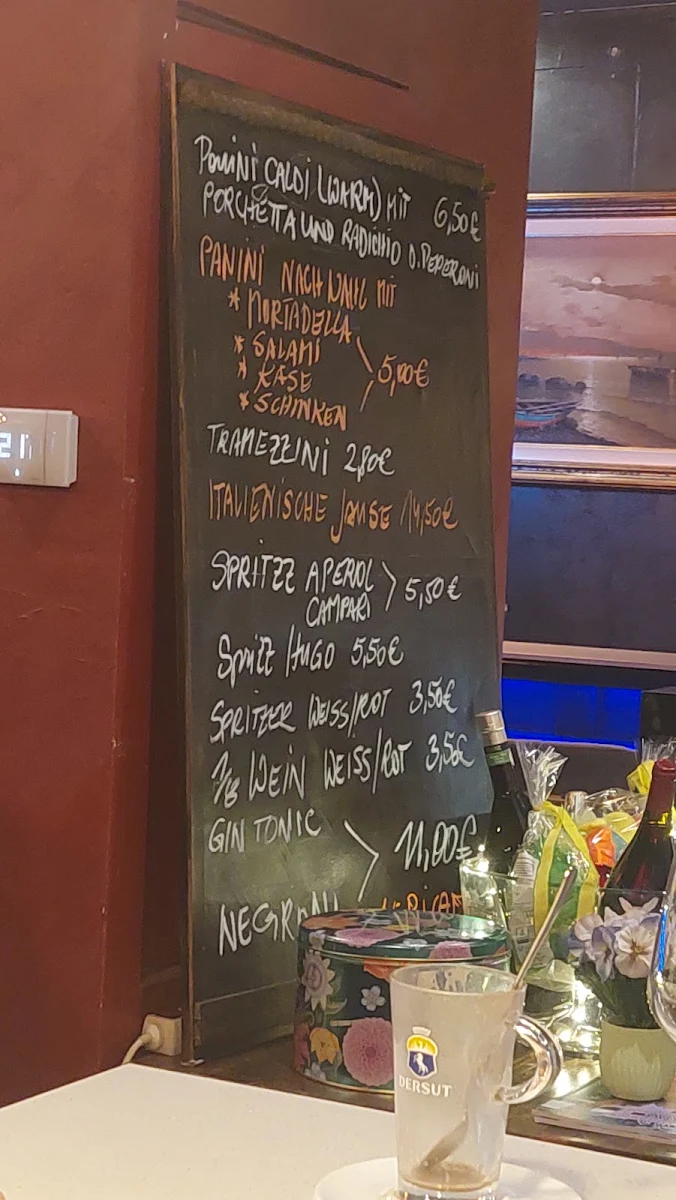 PANINI CALDI (WARM) MIT 6,50€
PORCHETTA UND RADICHIO O. PEPERONI
PANINI NACH WAHL MIT
* MORTADELLA
* SALAMI
* KÄSE
* SCHINKEN
5,00€
TRAMEZZINI 2,80€
ITALIENISCHE JAUSE 14,50€
SPRITZZ APEROL
CAMPARI
5,50€
SPRITZ/HUGO 5,50€
SPRITZER WEISS/ROT 3,50€
1/8 WEIN WEISS/ROT 3,50€
GIN TONIC
11,00€
NEGRONI
DERSUT